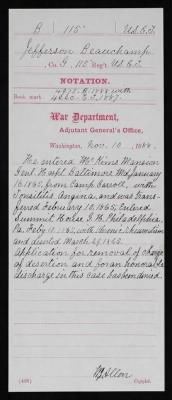 B 115 U.S.C.T.
Jefferson Beauchamp
Co. G, 115 Reg't U.S.C.T.
NOTATION.
Book mark:
War Department,
Adjutant General's Office,
Washington, Nov. 10, 1888.
He entered McKims Mansion
Genl Hospl Baltimore Md January
16, 1865, from Camp Carroll, with
Tonsilitis Angina, and was trans-
ferred February 10, 1865; Entered
Summit House G. H. Philadelphia
Pa. Feby 10, 1865, with chronic rheumatism
and deserted March 29, 1865.
Application for removal of charge
of desertion and for an honorable
discharge in this case has been denied.
Copyist.